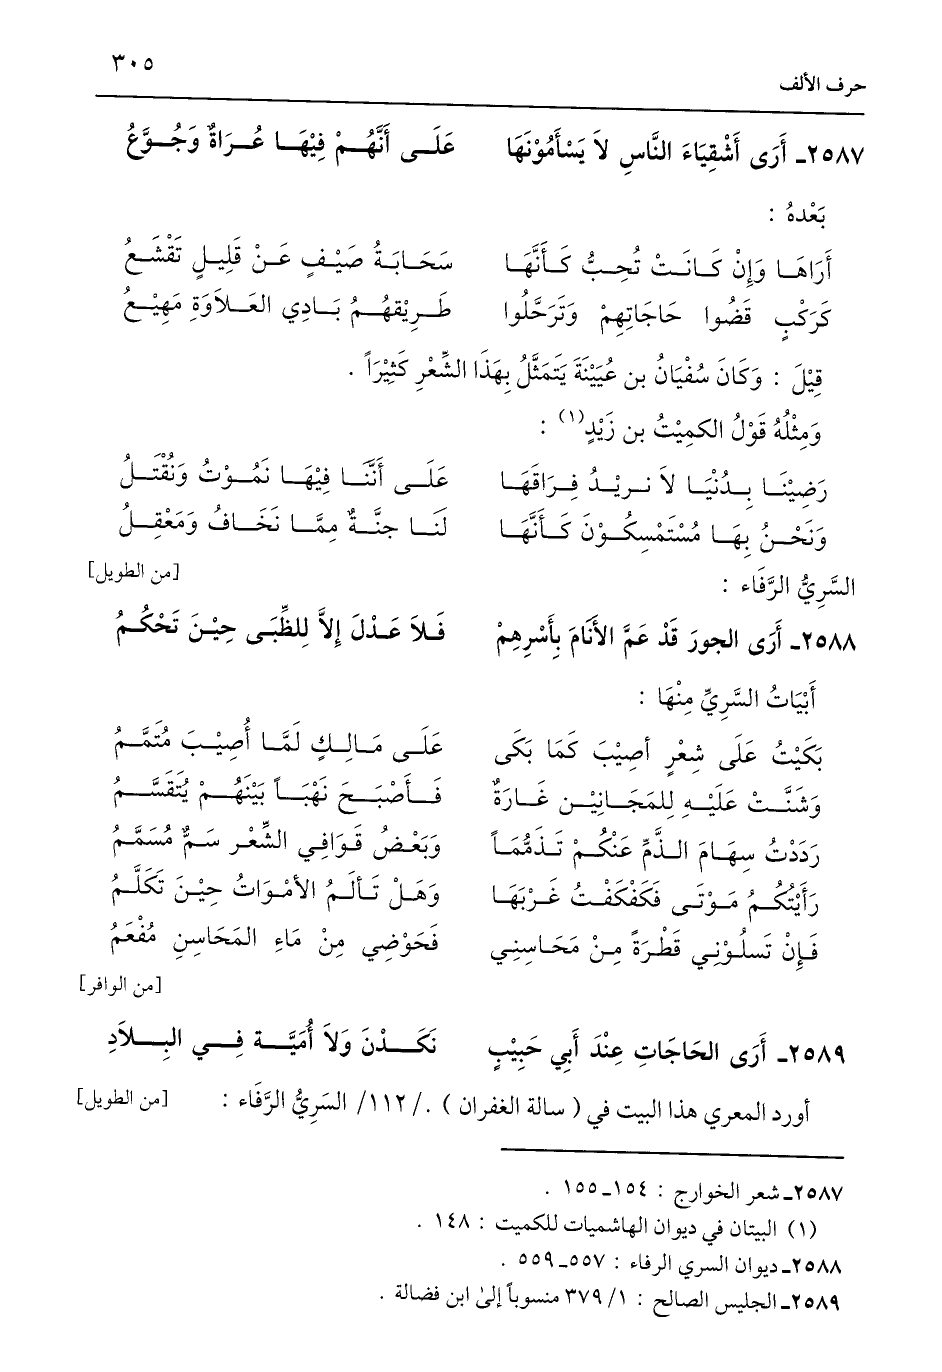 ٣٠٥
حرف الألف
٢٥٨٧ـ أَرَى أَشْقِيَاءَ النَّاسِ لاَ يَسْأَمُوْنَهَا عَلَـى أَنَّهُـمْ فِيْهَـا عُـرَاةٌ وَجُـوَّعُ
بَعْدهُ :
أَرَاهَـا وَإِنْ كَـانَـتْ تُحِـبُّ كَـأَنَّهَـا سَحَـابَـةُ صَيْـفٍ عَـنْ قَلِيـلٍ تَقْشَـعُ
كَرَكْبٍ قَضُوا حَاجَاتِهِمْ وَتَرَحَّلُوا طَـرِيْقهُـمُ بَـادِي العَـلاَوَةِ مَهْيَـعُ
قِيْلَ : وَكَانَ سُفْيَانُ بن عُيَيْنَةَ يَتَمَثَّلُ بِهَذَا الشِّعْرِ كَثِيْرَاً .
وَمِثْلُهُ قَوْلُ الكمِيْتُ بن زَيْدٍ(١) :
رَضِيْنَـا بِـدُنْيَـا لاَ نـرِيْـدُ فِـرَاقَهَـا عَلَـى أَنَّنَـا فِيْهَـا نَمُـوْتُ وَنُقْتَـلُ
وَنَحْـنُ بِهَـا مُسْتَمْسِكُـوْنَ كَـأَنَّهَـا لَنَـا جنَّـةٌ مِمَّـا نَخَـافُ وَمَعْقِـلُ
السَّرِيُّ الرَّفَاء : [من الطويل]
٢٥٨٨ـ أَرَى الجورَ قَدْ عَمَّ الأَنَامَ بِأَسْرِهِمْ فَـلاَ عَـدْلَ إِلاَّ لِلظِّبَـى حِيْـنَ تَحْكُـمُ
أَبْيَاتُ السَّرِيِّ مِنْهَا :
بَكَيْتُ عَلَى شِعْرٍ أصِيْبَ كَمَا بَكَى عَلَـى مَـالِـكٍ لَمَّـا أُصِيْـبَ مُتَمَّـمُ
وَشَنَّـتْ عَلَيْـهِ لِلمَجَـانِيْـنِ غَـارَةٌ فَـأَصْبَـحَ نَهْبَـاً بَيْنَهُـمْ يُتَقَسَّـمُ
رَدَدْتُ سِهَـامَ الـذَّمِّ عَنْكُـمْ تَـذَمُّمَـاً وَبَعْـضُ قَـوَافِي الشِّعْـرِ سَـمٌّ مُسَمَّـمُ
رَأَيْتُكُـمُ مَـوْتَى فَكَفْكَفْـتُ غَـرْبَهَـا وَهَـلْ تَـألَـمُ الأمْـوَاتُ حِيْـنَ تَكَلَّـمُ
فَـإِنْ تَسلُـوْنِي قَطْرَةً مِـنْ مَحَـاسِنِـي فَحَوْضِي مِـنْ مَاءِ المَحَاسِنِ مُفْعَمُ
[من الوافر]
٢٥٨٩ـ أَرَى الحَاجَاتِ عِنْدَ أَبِي حَبِيْبٍ نَكَـدْنَ وَلاَ أُمَيَّـةَ فِـي البِـلاَدِ
أورد المعري هذا البيت في ( سالة الغفران ) ./ ١١٢/ السَرِيُّ الرَّفَاء : [من الطويل]
٢٥٨٧ـ شعر الخوارج : ١٥٤ـ١٥٥ .
(١) البيتان في ديوان الهاشميات للكميت : ١٤٨ .
٢٥٨٨ـ ديوان السري الرفاء : ٥٥٧ـ٥٥٩ .
٢٥٨٩ـ الجليس الصالح : ١/ ٣٧٩ منسوباً إلىٰ ابن فضالة .